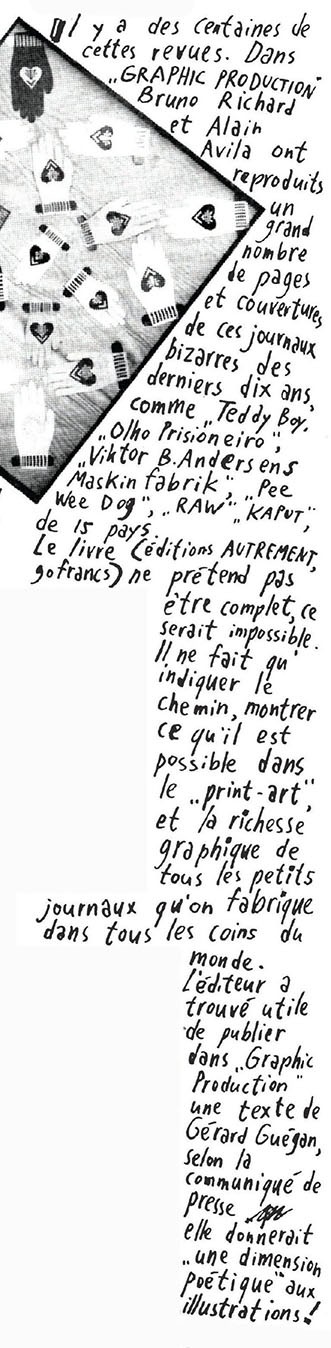 Il y a des centaines de
cettes revues. Dans
„GRAPHIC PRODUCTION"
Bruno Richard
et Alain
Avila ont
reproduits
un
grand
nombre
de pages
et couvertures
de ces journaux
bizarres des
derniers dix ans,
comme „Teddy Boy,
„Olho Prisioneiro",
„Viktor B. Andersens
Maskin fabrik", „Pee
Wee Dog", „RAW" „KAPUT",
de 15 pays.
Le livre (éditions AUTREMENT,
90francs) ne prétend pas
être complet, ce
serait impossible.
Il ne fait qu'
indiquer le
chemin, montrer
ce qu'il est
possible dans
le „print-art",
et la richesse
graphique de
tous les petits
journaux qu'on fabrique
dans tous les coins du
monde.
L'éditeur a
trouvé utile
de publier
dans „Graphic
Production"
une texte de
Gérard Guégan,
selon la
communiqué de
presse
elle donnerait
„une dimension
poétique" aux
illustrations!